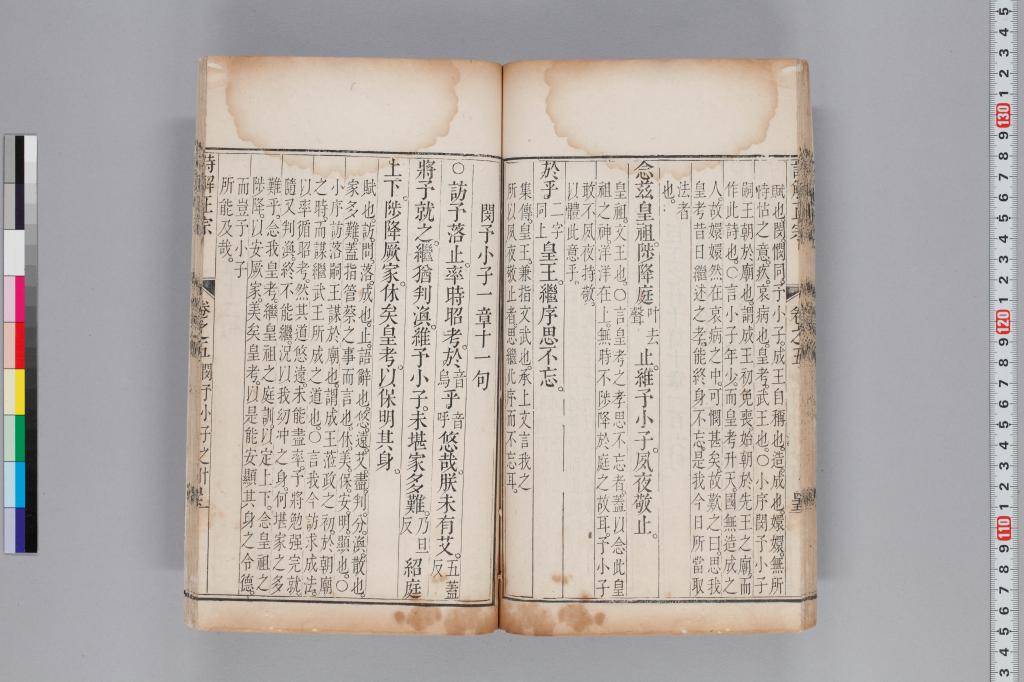 賦也。閔憫同。予小子。成王自稱也。造。成也。嬛嬛。無所
恃怙之意。疚。哀病也。皇考。武王也。○小序閔予小子
嗣王朝於廟也。謂成王初免喪始朝於先王之廟而
作此詩也。○言小子年少。而皇考升天國無造成之
人。故嬛嬛然在哀病之中。可憫甚矣。故歎之曰。思我
皇考昔日繼述之孝。能終身不忘。是我今日所當取
法者
也。
念茲皇祖。陟降庭叶去聲止。維予小子。夙夜敬止。
皇祖。文王也。○言皇考之孝思不忘者。蓋以念此皇
祖之神洋洋在上。無時不陟降於庭之故耳。予小子
敢不夙夜持敬。
以體此意乎。
於乎二字阿上皇王。繼序思不忘。
集傳。皇王。兼指文武也。承上文言我之
所以夙夜敬止者。思繼此序而不忘耳。
閔予小子一章十一句
○訪予落止。率時昭考。於音烏乎音呼悠哉。朕未有艾。五蓋反
將予就之。繼猶判渙。維予小子。未堪家多難。乃旦反紹庭
上下。陟降厥家。休矣皇考。以保明其身。
賦也。訪。問。落。成也。止。語辭也。悠。遠。艾。盡。判。分。渙。散也。
家多難。蓋指管蔡之事而言也。休。美。保。安。明。顯也。○
小序訪落嗣王謀於廟也。謂成王蒞政之初於朝廟
之時。而謀繼武王所成之道也。○言我今訪求成法。
以率循昭考。然其道悠遠。未能盡率。予將勉强完就。
隨又判渙。終不能繼。況以我幼冲之身。何堪家之多
難乎。念我皇考。繼皇祖之庭訓。以定上下。念皇祖之
陟降。以安厥家。美矣皇考。以是能安顯其身之令德。
而豈予小子
所能及哉。
詩解正宗 卷之五 閔予小子之什